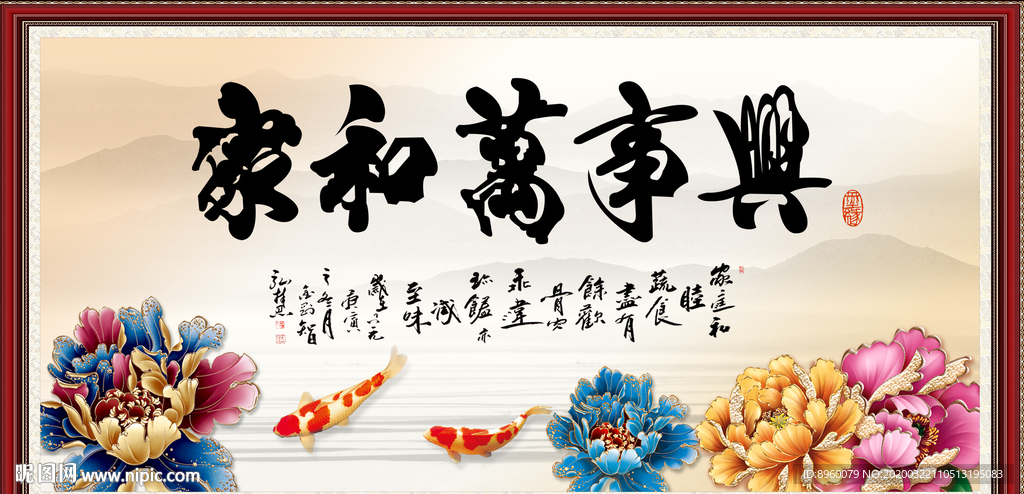 家和萬事興
家庭和
睦
蔬食
盡有
餘歡
骨肉
乖違
珍饈亦
減
至味
庚寅
之冬月
昵图网 www.nipic.com
ID:8960079 NO:20200322110513195083